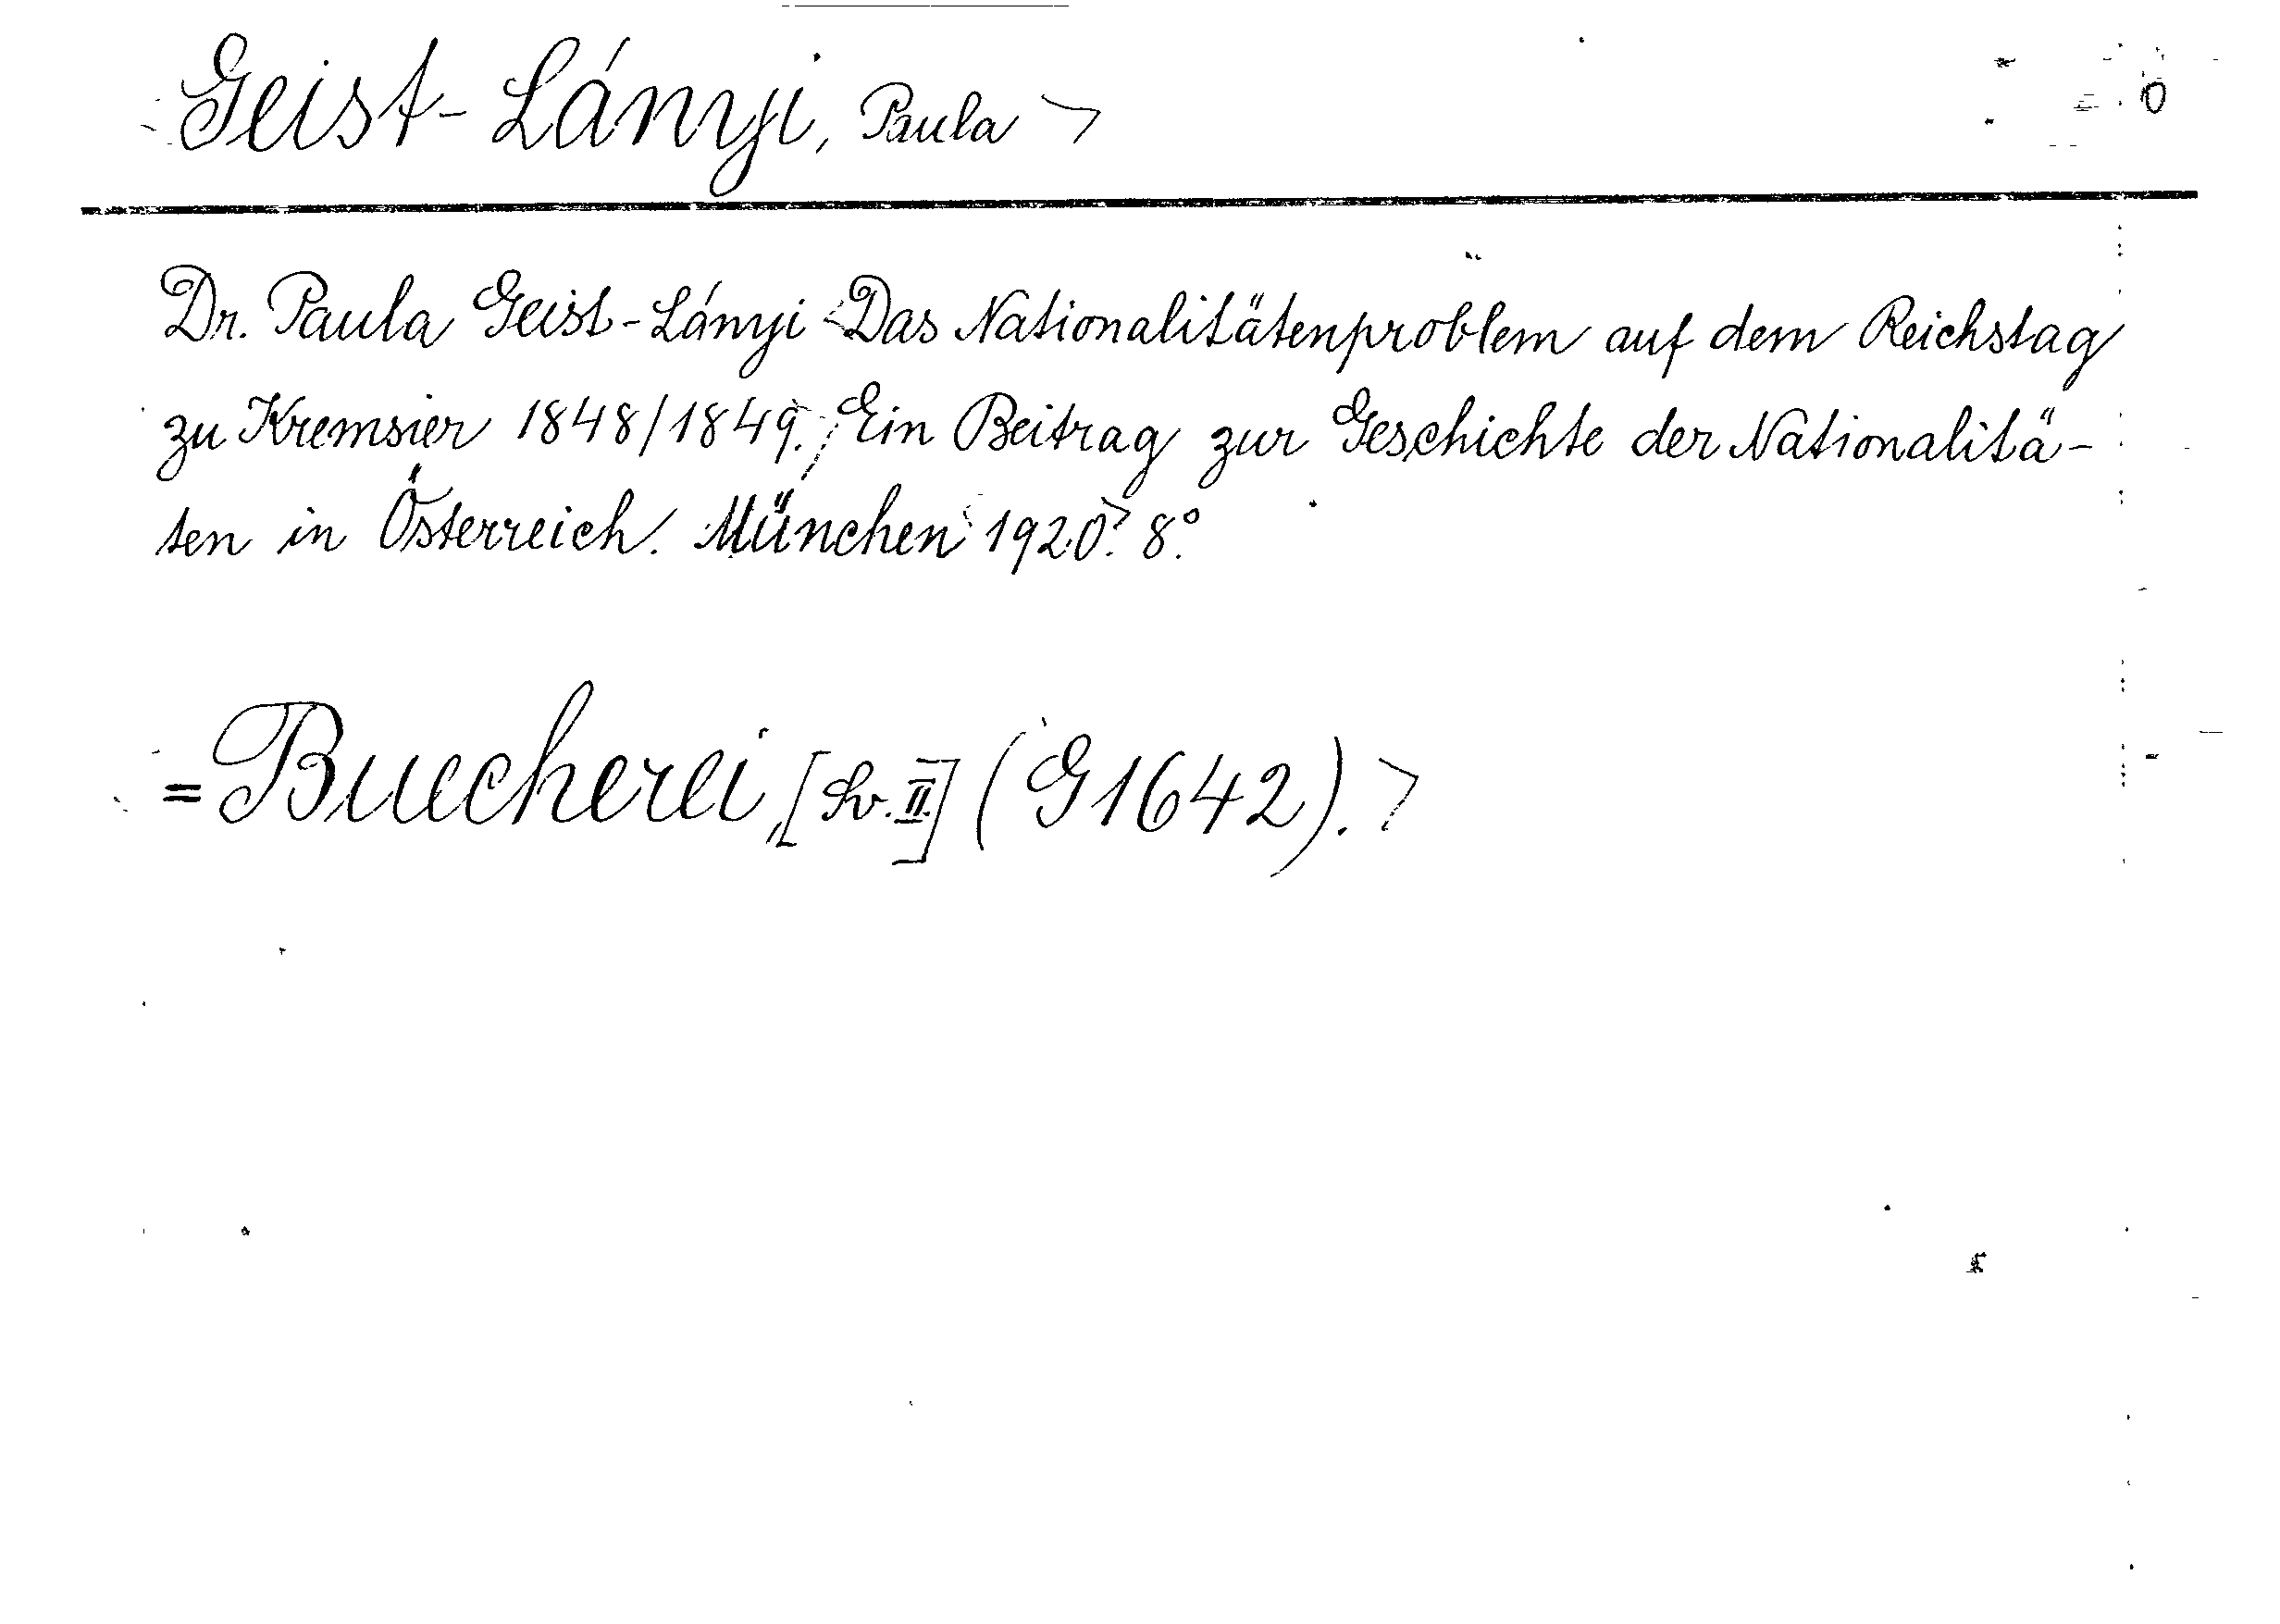 Geist-Lányi, Paula
0
Dr. Paula Geist-Lányi Das Nationalitätenproblem auf dem Reichstag
zu Kremsier 1848/1849. Ein Beitrag zur Geschichte der Nationalitä-
ten in Österreich. München 1920. 8°.
=Buecherei, [Sv. II.] (G1642).